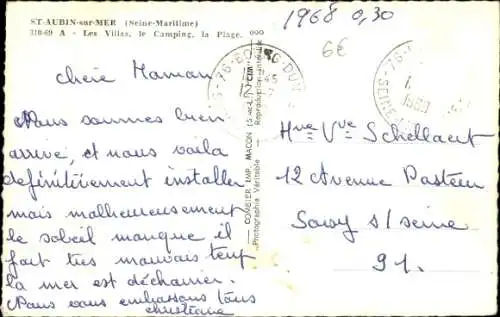 ST-AUBIN-sur-MER (Seine-Maritime)
310-69 A - Les Villas, le Camping, la Plage.
1968 0,30
6€
chère Maman
Nous sommes bien
arrivé, et nous voila
definitivement installer
mais malheureusement
le soleil manque il
fait très mauvais temp
la mer est déchainer.
Nous vous embrassons tous
christiane
COMBIER IMP. MACON
Photographie Véritable - Reproduction interdite
Mme Vve Schellaert
12 Avenue Pasteur
Soisy s/seine
91.